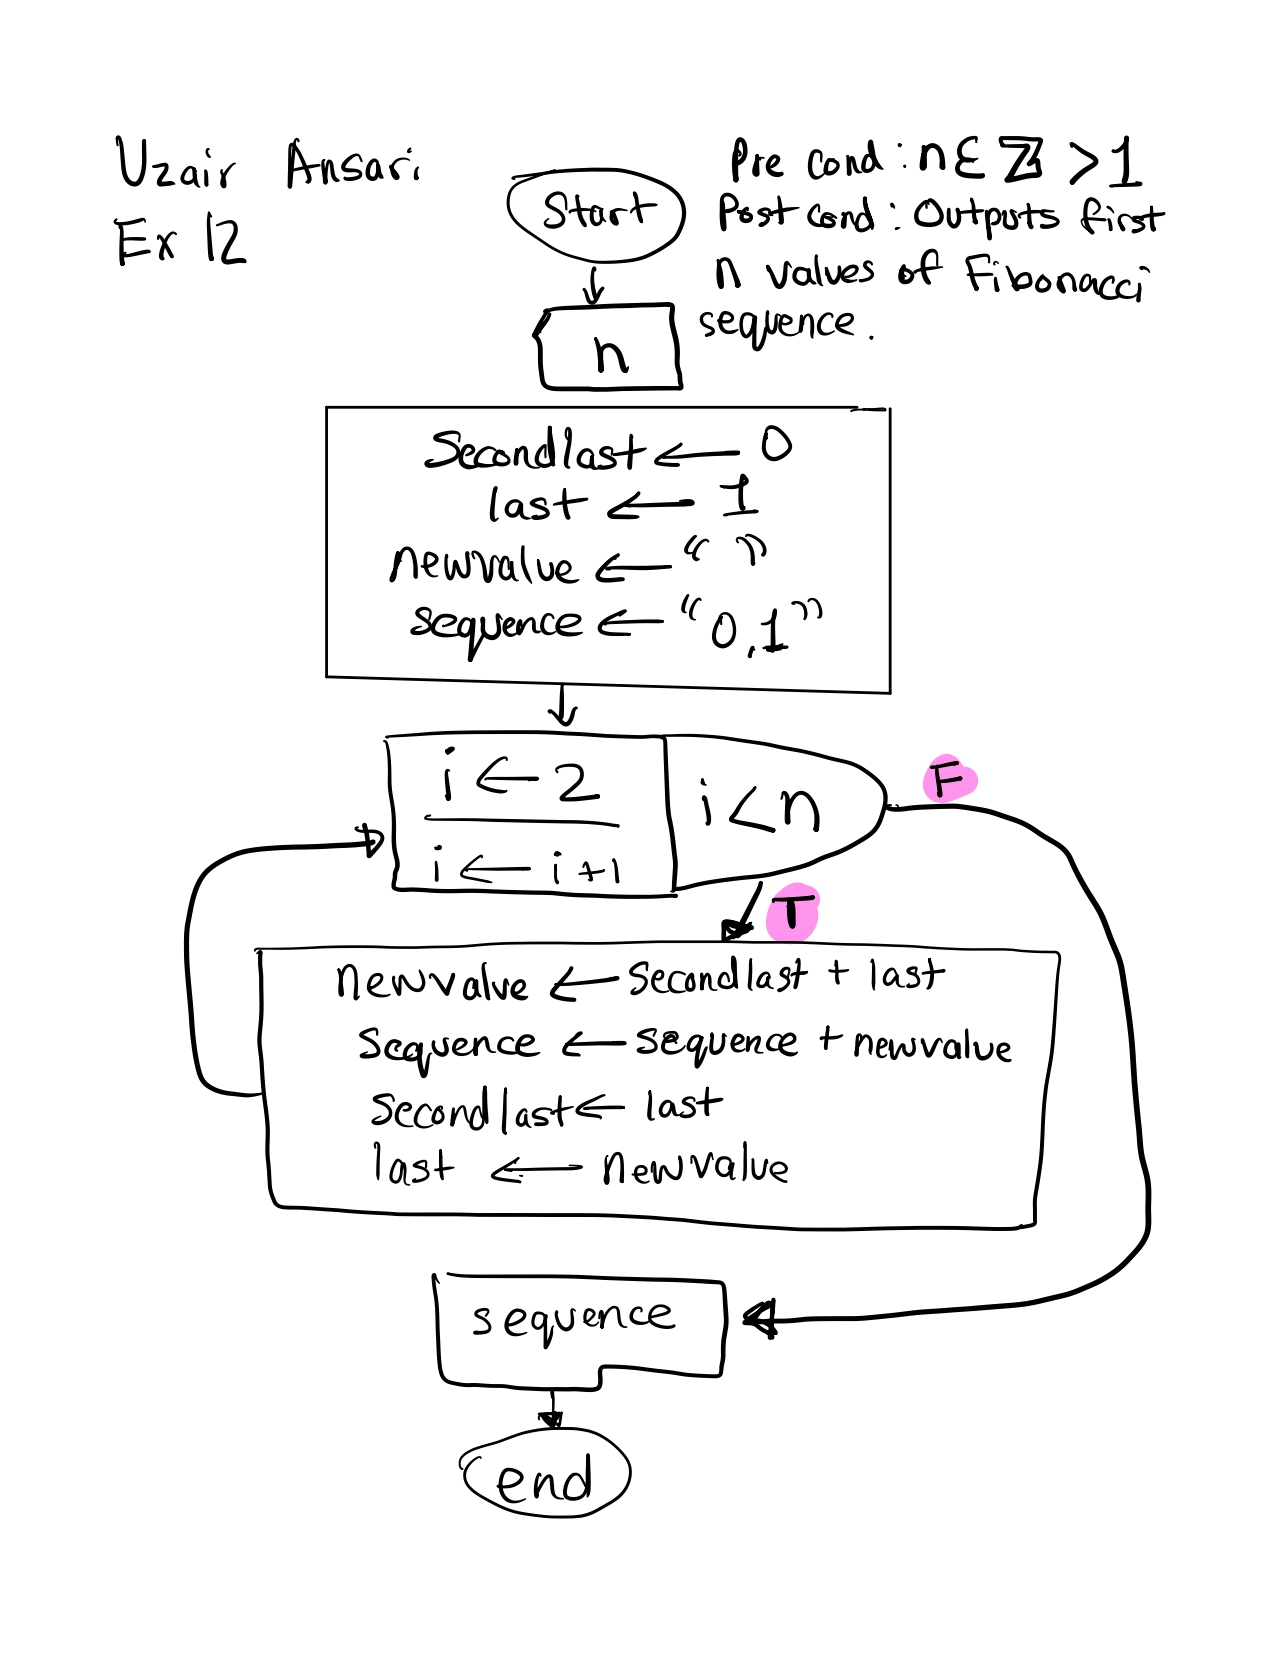 Uzair Ansari
Ex 12
Pre cond: n ∈ ℤ > 1
Post cond: Outputs first
n values of Fibonacci
sequence.
Start
n
Secondlast ← 0
last ← 1
newvalue ← “ ”
sequence ← “0,1”
i ← 2
i ← i+1
i < n
F
T
newvalue ← Secondlast + last
Sequence ← sequence + newvalue
Secondlast ← last
last ← newvalue
sequence
end